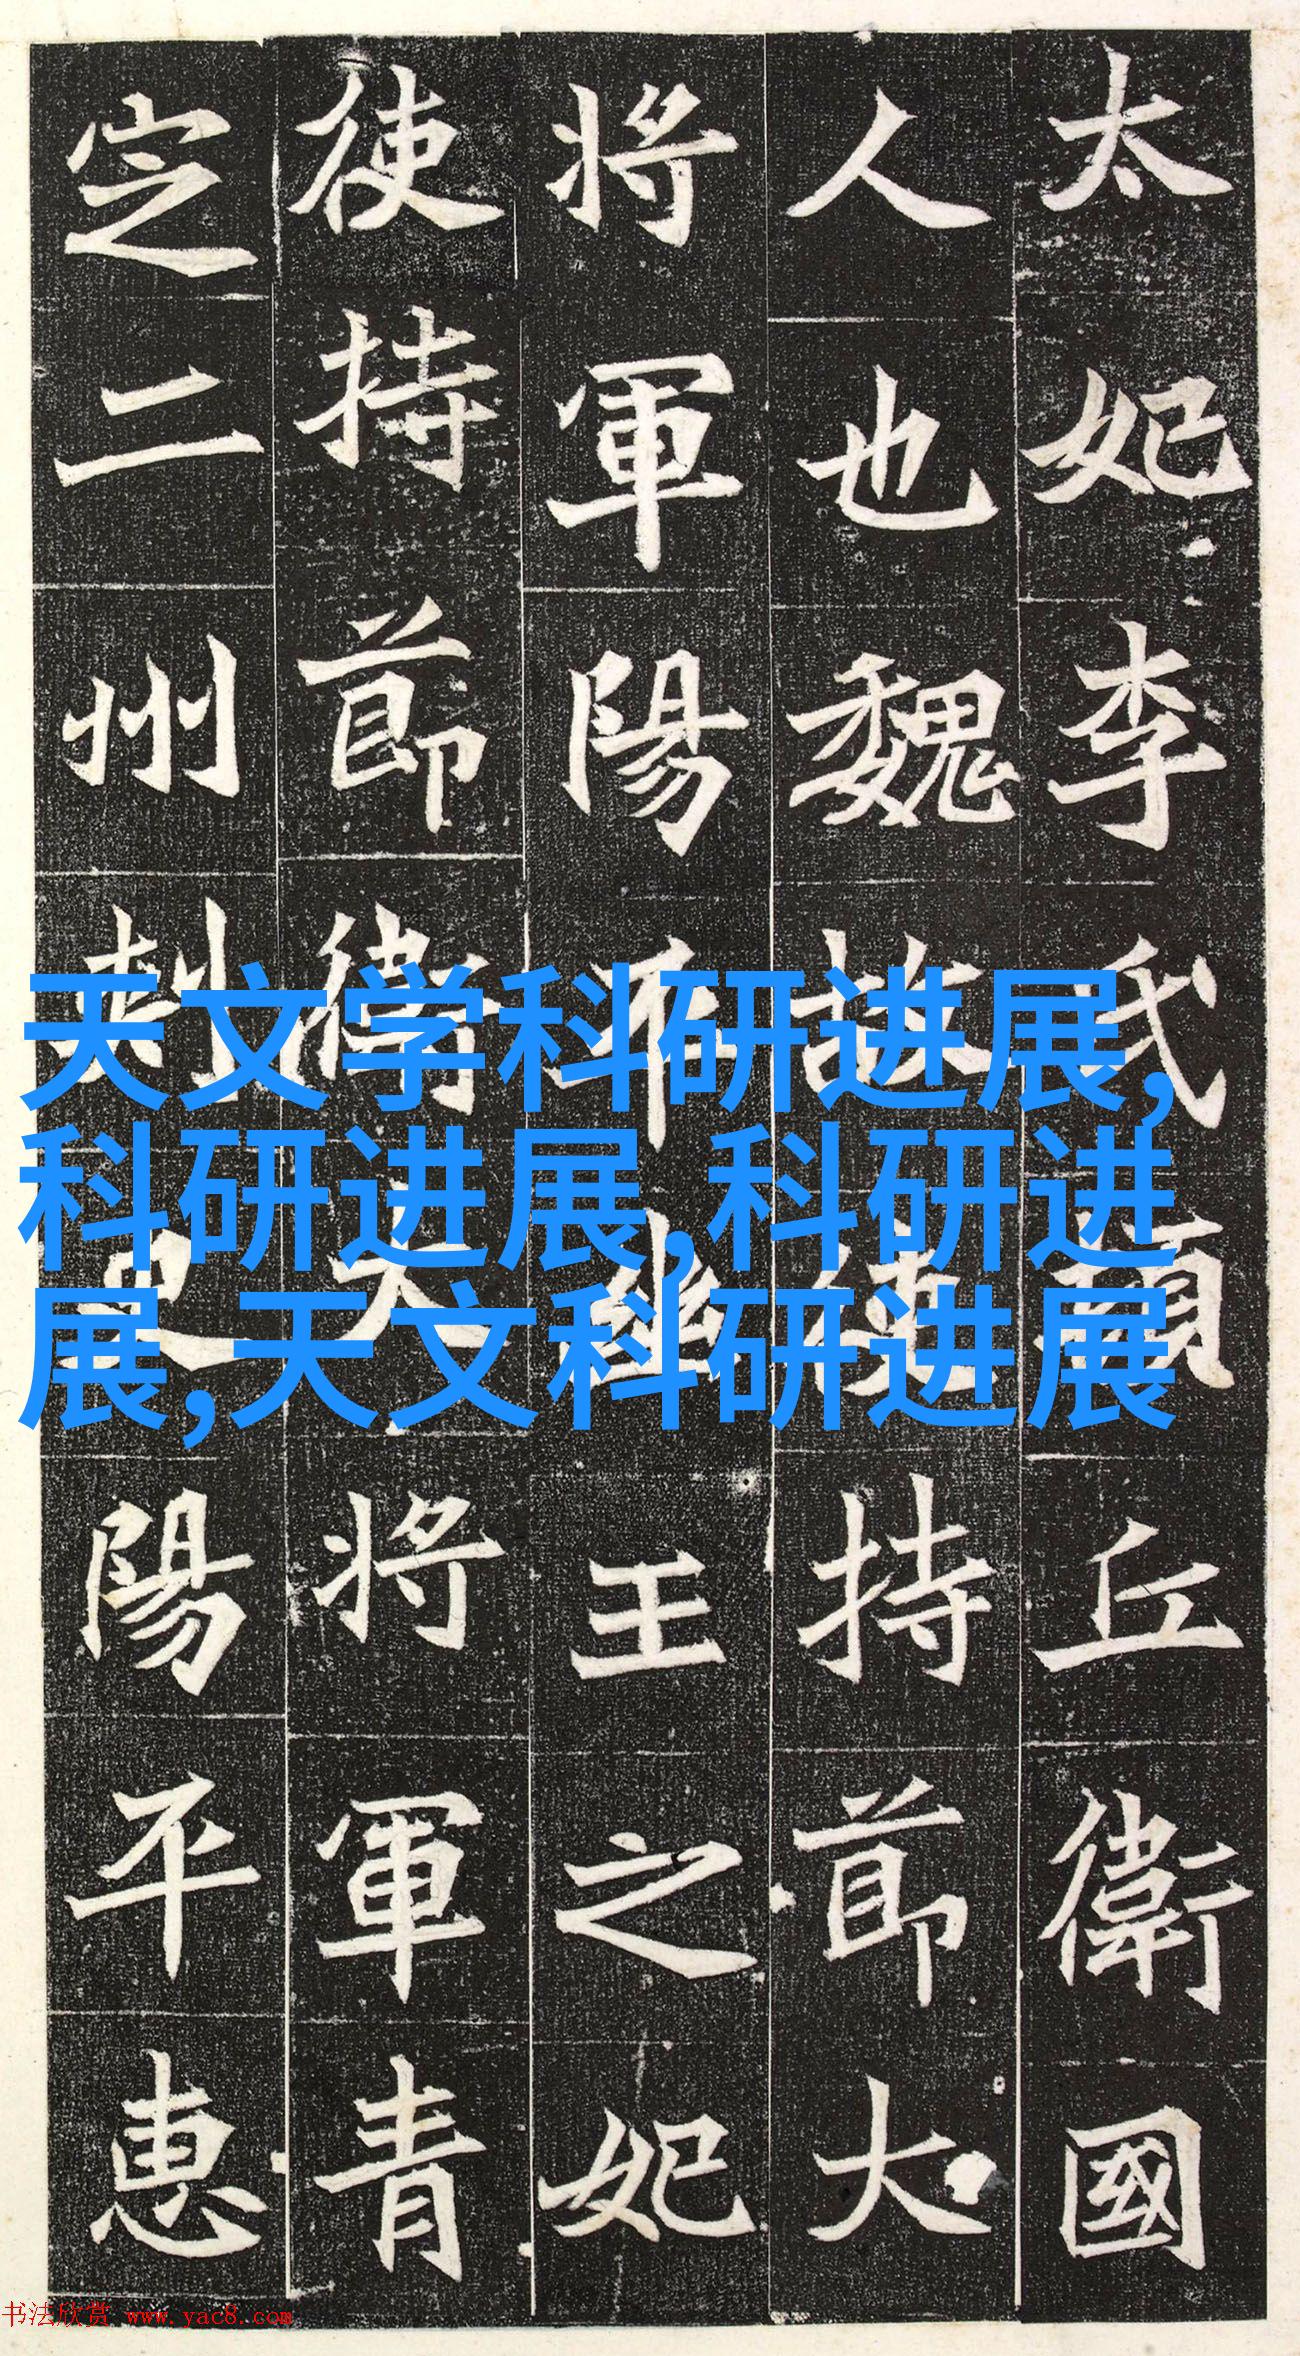 太妃李氏頓丘衛國
人也魏故使持節大
將軍陽平幽王之妃
使持節衛大將軍青
定二州刺史陽平惠
天文学科研进展,
科研进展,科研进
展,天文科研进展
书法欣赏 www.yac8.com